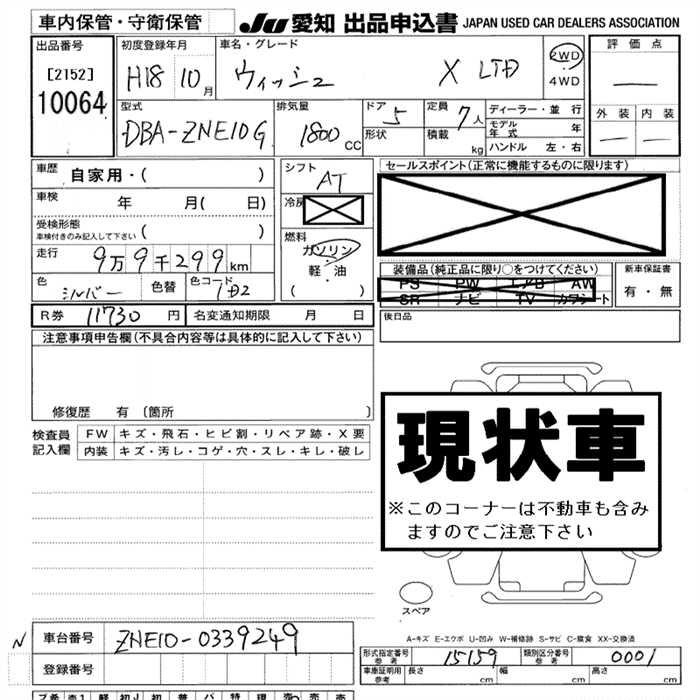 車内保管・守衛保管
JU 愛知 出品申込書 JAPAN USED CAR DEALERS ASSOCIATION
出品番号
[2152]
10064
初度登録年月
H18 10月
車名・グレード
ウィッシュ X LTD
2WD
4WD
評価点
外装 内装
型式
DBA-ZNE10G
排気量
1800 CC
ドア 5
形状
定員 7人
積載 kg
ディーラー・並行
モデル年式 年
ハンドル 左・右
車歴
自家用・( )
車検 年 月( 日)
受検形態
車検付きのみ記入して下さい ( )
走行 9万9千299km
色 シルバー 色替 色コード 1D2
シフト
AT
冷房
燃料
ガソリン
軽・油
( )
セールスポイント(正常に機能するものに限ります)
装備品(純正品に限り○をつけてください)
PS PW エアB AW
SR ナビ TV カワシート
新車保証書
有・無
R券 11730円 名変通知期限 月 日
後日品
注意事項申告欄(不具合内容等は具体的に記入して下さい)
修復歴 有〔箇所 〕
検査員記入欄
FW キズ・飛石・ヒビ割・リペア跡・X要
内装 キズ・汚レ・コゲ・穴・スレ・キレ・破レ
現状車
※このコーナーは不動車も含み
ますのでご注意下さい
スペア
A-キズ E-エクボ U-凹み W-補修跡 S-サビ C-腐食 XX-交換済
N 車台番号 ZNE10-0339249
登録番号
形式指定番号 参考 15159 類別区分番号 参考 0001
車庫証明用 参考 長さ cm 幅 cm 高さ cm